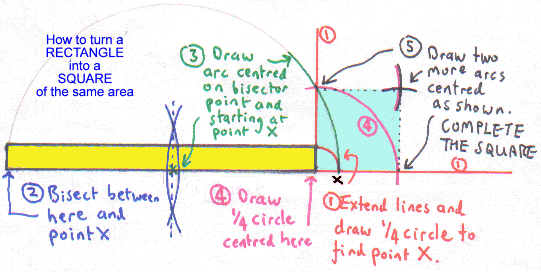 How to turn a
RECTANGLE
into a
SQUARE
of the same area
① Extend lines and
draw ¼ circle to
find point X.
② Bisect between
here and
point X
③ Draw
arc centred
on bisector
point and
starting at
point X
④ Draw
¼ circle
centred here
⑤ Draw two
more arcs
centred
as shown.
COMPLETE
THE SQUARE
①
④
①
x
x